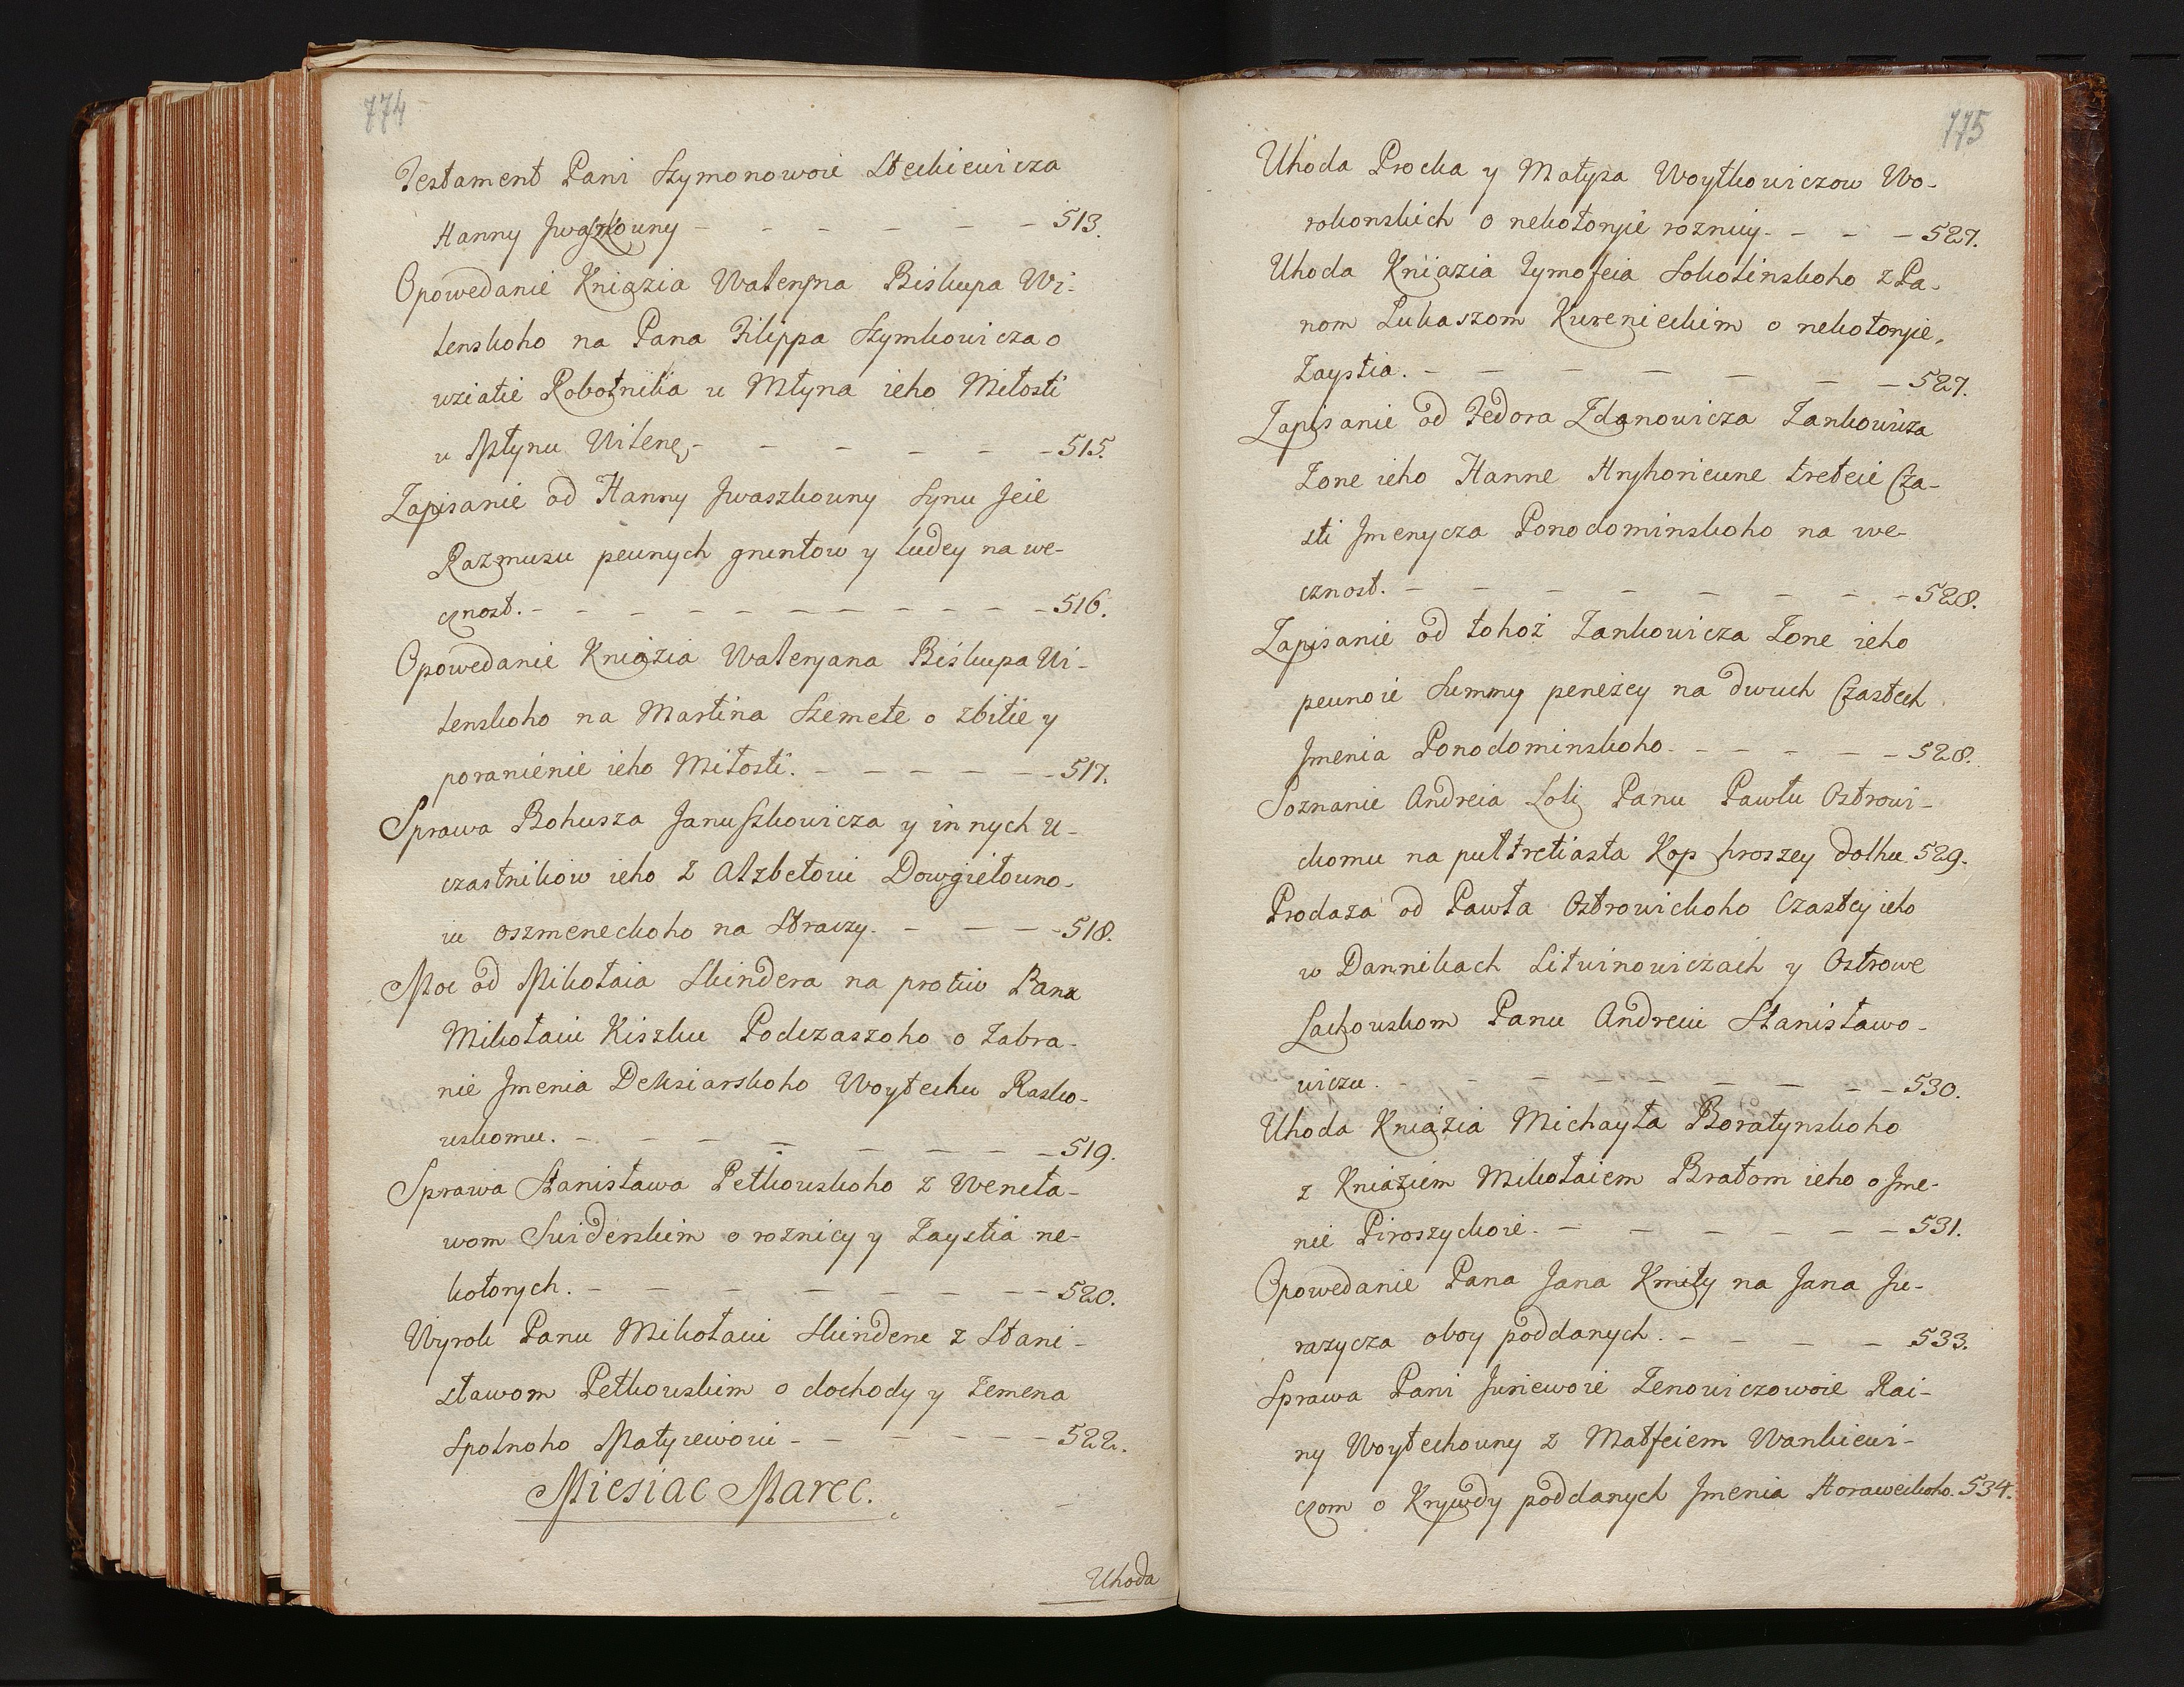 774
Testament Pani Szymonowoie Steckiewicza
Hanny Jwaszkouny - - - - - - 513.
Opowedanie Kniazia Waleryna Biskupa Wi-
lenskoho na Pana Filippa Szymkowicza o
wziatie Robotnika u Młyna ieho Miłosti
u Młynu Wilene, - - - - - - 515.
Zapisanie od Hanny Jwaszkouny Synu Jeie
Razmusu peunych gruntow y ludey na we-
cznost. - - - - - - - - - - 516.
Opowedanie Kniazia Waleryana Biskupa Wi-
lenskoho na Martina Szemete o zbitie y
poranienie ieho Miłosti. - - - - - - 517.
Sprawa Bohusza Januszkowicza y innych u-
czastnikow ieho z Alzbetoiu Dowgiełouno-
iu oszmeneckoho na Straczy. - - - - 518.
Moc od Mikołaia Skindera na protiw Pana
Mikołaiu Kiszku Podczaszoho o zabra-
nie Jmenia Deksiarskoho Woytechu Rasko-
uskomu. - - - - - - - - 519.
Sprawa Stanisława Petkouskoho z Wencła-
wom Swiderskim o roznicy y Zaystia ne-
kotorych. - - - - - - - - 520.
Wyrok Panu Mikołaiu Skindere z Stani-
sławom Petkouskim o dochody y Zemena
Spolnoho Matyiewoiu - - - - - - 522.
Miesiac Marec.
Uhoda
775
Uhoda Procka y Matysa Woytkowiczow Wo-
rokonskich o nekotoryie roznicy. - - - 527.
Uhoda Kniazia Tymofeia Sokolinskoho z Pa-
nom Lukaszom Kurenieckim o nekotoryie
Zaystia. - - - - - - - 527.
Zapisanie od Fedora Zdanowicza Zankowicza
Zone ieho Hanne Hryhorieune treteie Cza-
sti Jmenycza Ponodominskoho na we-
cznost. - - - - - - - - 528.
Zapisanie od tohoż Zankowicza Zone ieho
peunoie Summy peneżey na dwuch Czastech
Jmenia Ponodominskoho. - - - - - 528.
Soznanie Andreia Loli Panu Pawłu Ostrowi-
ckomu na pułtretiasta Kop hroszey dolhu. 529.
Prodaza od Pawła Ostrowickoho Czastey ieho
w Dannikach Litwinowiczach y Ostrowe
Lachouskom Panu Andreiu Stanisławo-
wiczu. - - - - - - - - - 530.
Uhoda Kniazia Michayła Boratynskoho
z Kniaziem Mikołaiem Bratom ieho o Jme-
nie Piroszyckoie. - - - - - - 531.
Opowedanie Pana Jana Kmity na Jana Ju-
razycza oboy poddanych. - - - - 533.
Sprawa Pani Juriewoie Zenowiczowoie Rai-
ny Woytechouny z Matfeiem Wankiewi-
czom o Krywdy poddanych Jmenia Horaweckoho. 534.